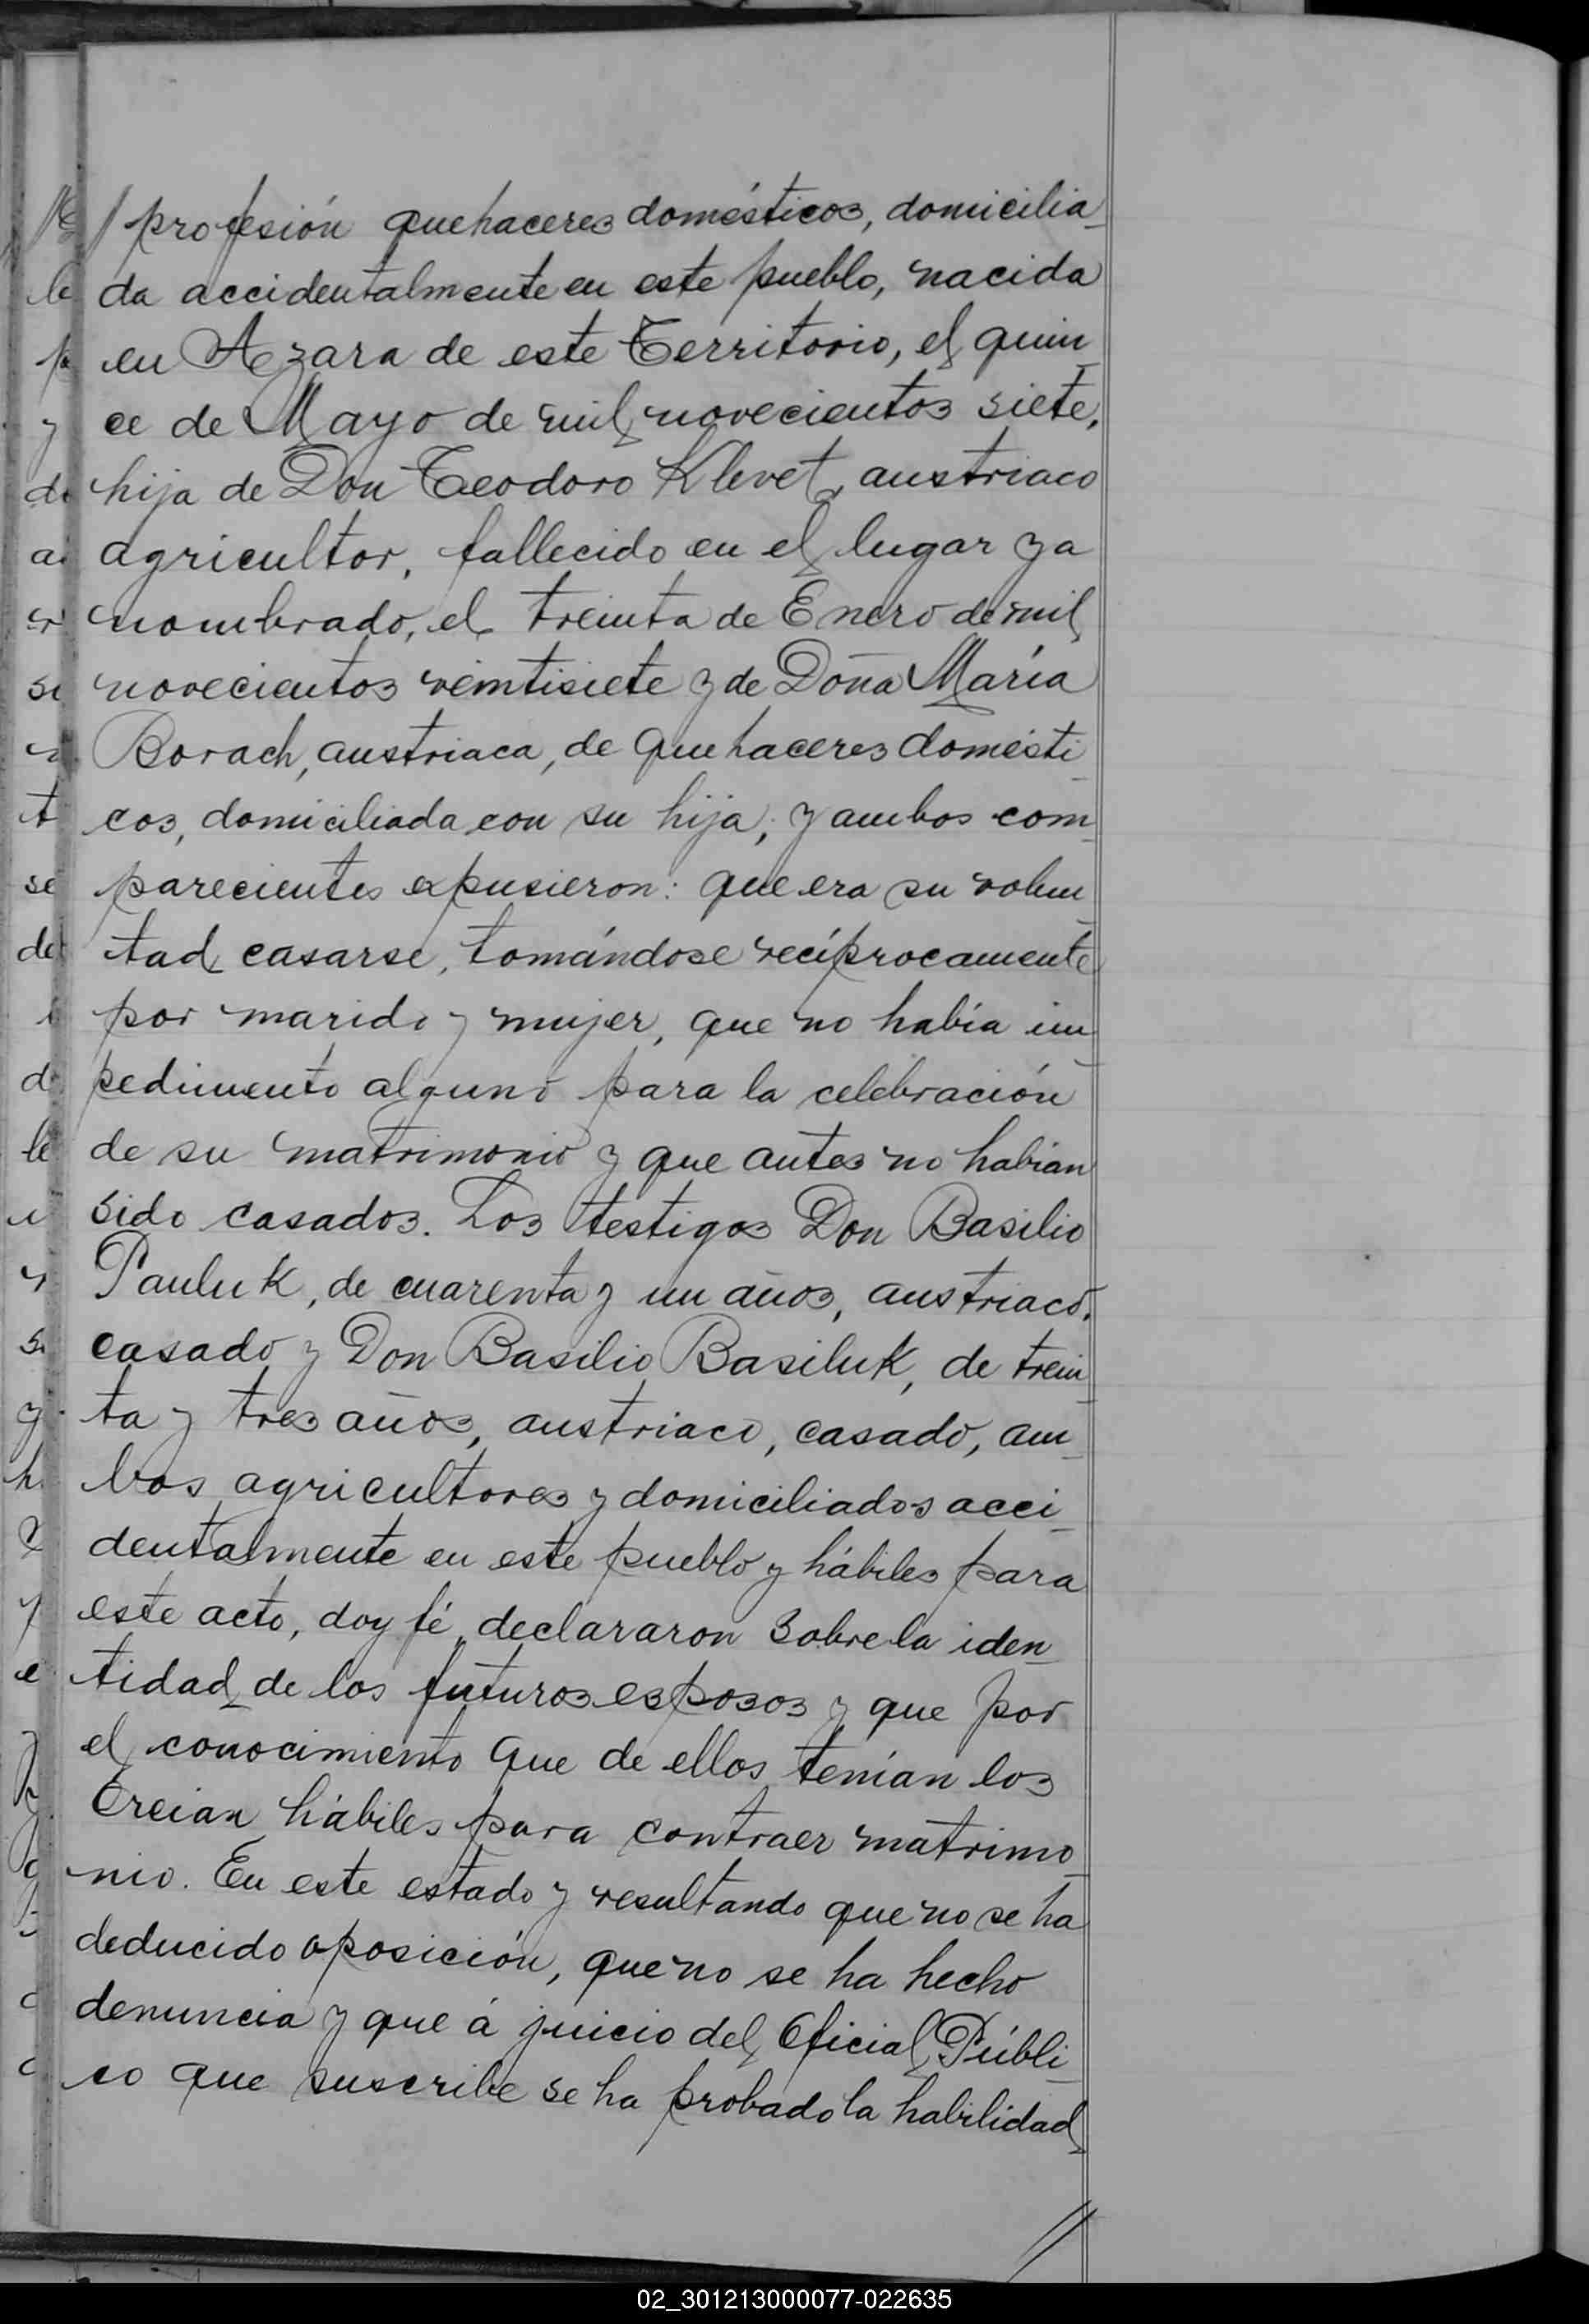 / profesión quehaceres domésticos, domicilia_
da accidentalmente en este pueblo, nacida
en Azara de este Territorio, el quin_
ce de Mayo de mil novecientos siete,
hija de Don Teodoro Klevet, austriaco
agricultor, fallecido en el lugar ya
nombrado, el treinta de Enero de mil
novecientos veintisiete y de Doña María
Borach, austriaca, de quehaceres domésti_
cos, domiciliada con su hija; y ambos com_
parecientes expusieron: que era su volun_
tad casarse, tomándose recíprocamente
por marido y mujer, que no había im_
pedimento alguno para la celebración
de su matrimonio y que antes no habían
sido casados. Los testigos Don Basilio
Pauluk, de cuarenta y un años, austriaco,
casado y Don Basilio Basiluk, de trein_
ta y tres años, austriaco, casado, am_
bos agricultores y domiciliados acci_
dentalmente en este pueblo y hábiles para
este acto, doy fé, declararon sobre la iden_
tidad de los futuros esposos y que por
el conocimiento que de ellos tenían los
creían hábiles para contraer matrimo_
nio. En este estado y resultando que no se ha
deducido oposición, que no se ha hecho
denuncia y que á juicio del Oficial Públi_
co que suscribe se ha probado la habilidad
//
02_301213000077-022635